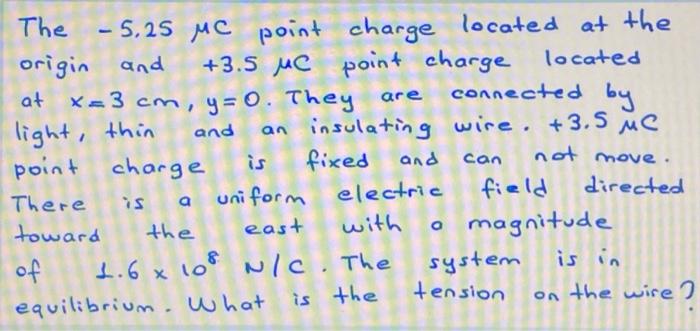 The -5,25 μC point charge located at the
origin and +3.5 μC point charge located
at x=3 cm, y=0. They are connected by
light, thin and an insulating wire. +3.5 μC
point charge is fixed and can not move.
There is a uniform electric field directed
toward the east with a magnitude
of 1.6 x 10⁸ N/C. The system is in
equilibrium. What is the tension on the wire?